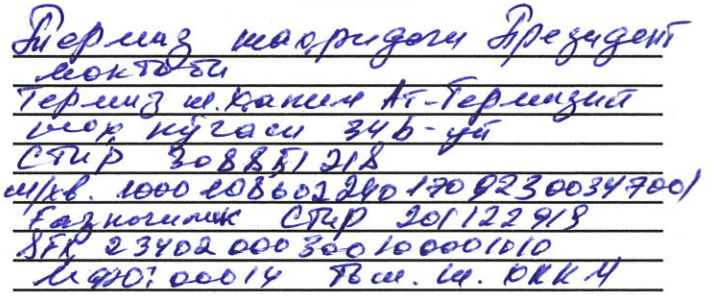 Термиз шахридаги Президент
мактаби
Термиз ш. Хаким Ат-Термизий
шох кўчаси 34Б-уй
СТИР 308851218
ш/хв. 100010860224017092300347001
Ғазначилик СТИР 201122919
23402000300100001010
МФО: 00014 Тош. ш. ХККМ